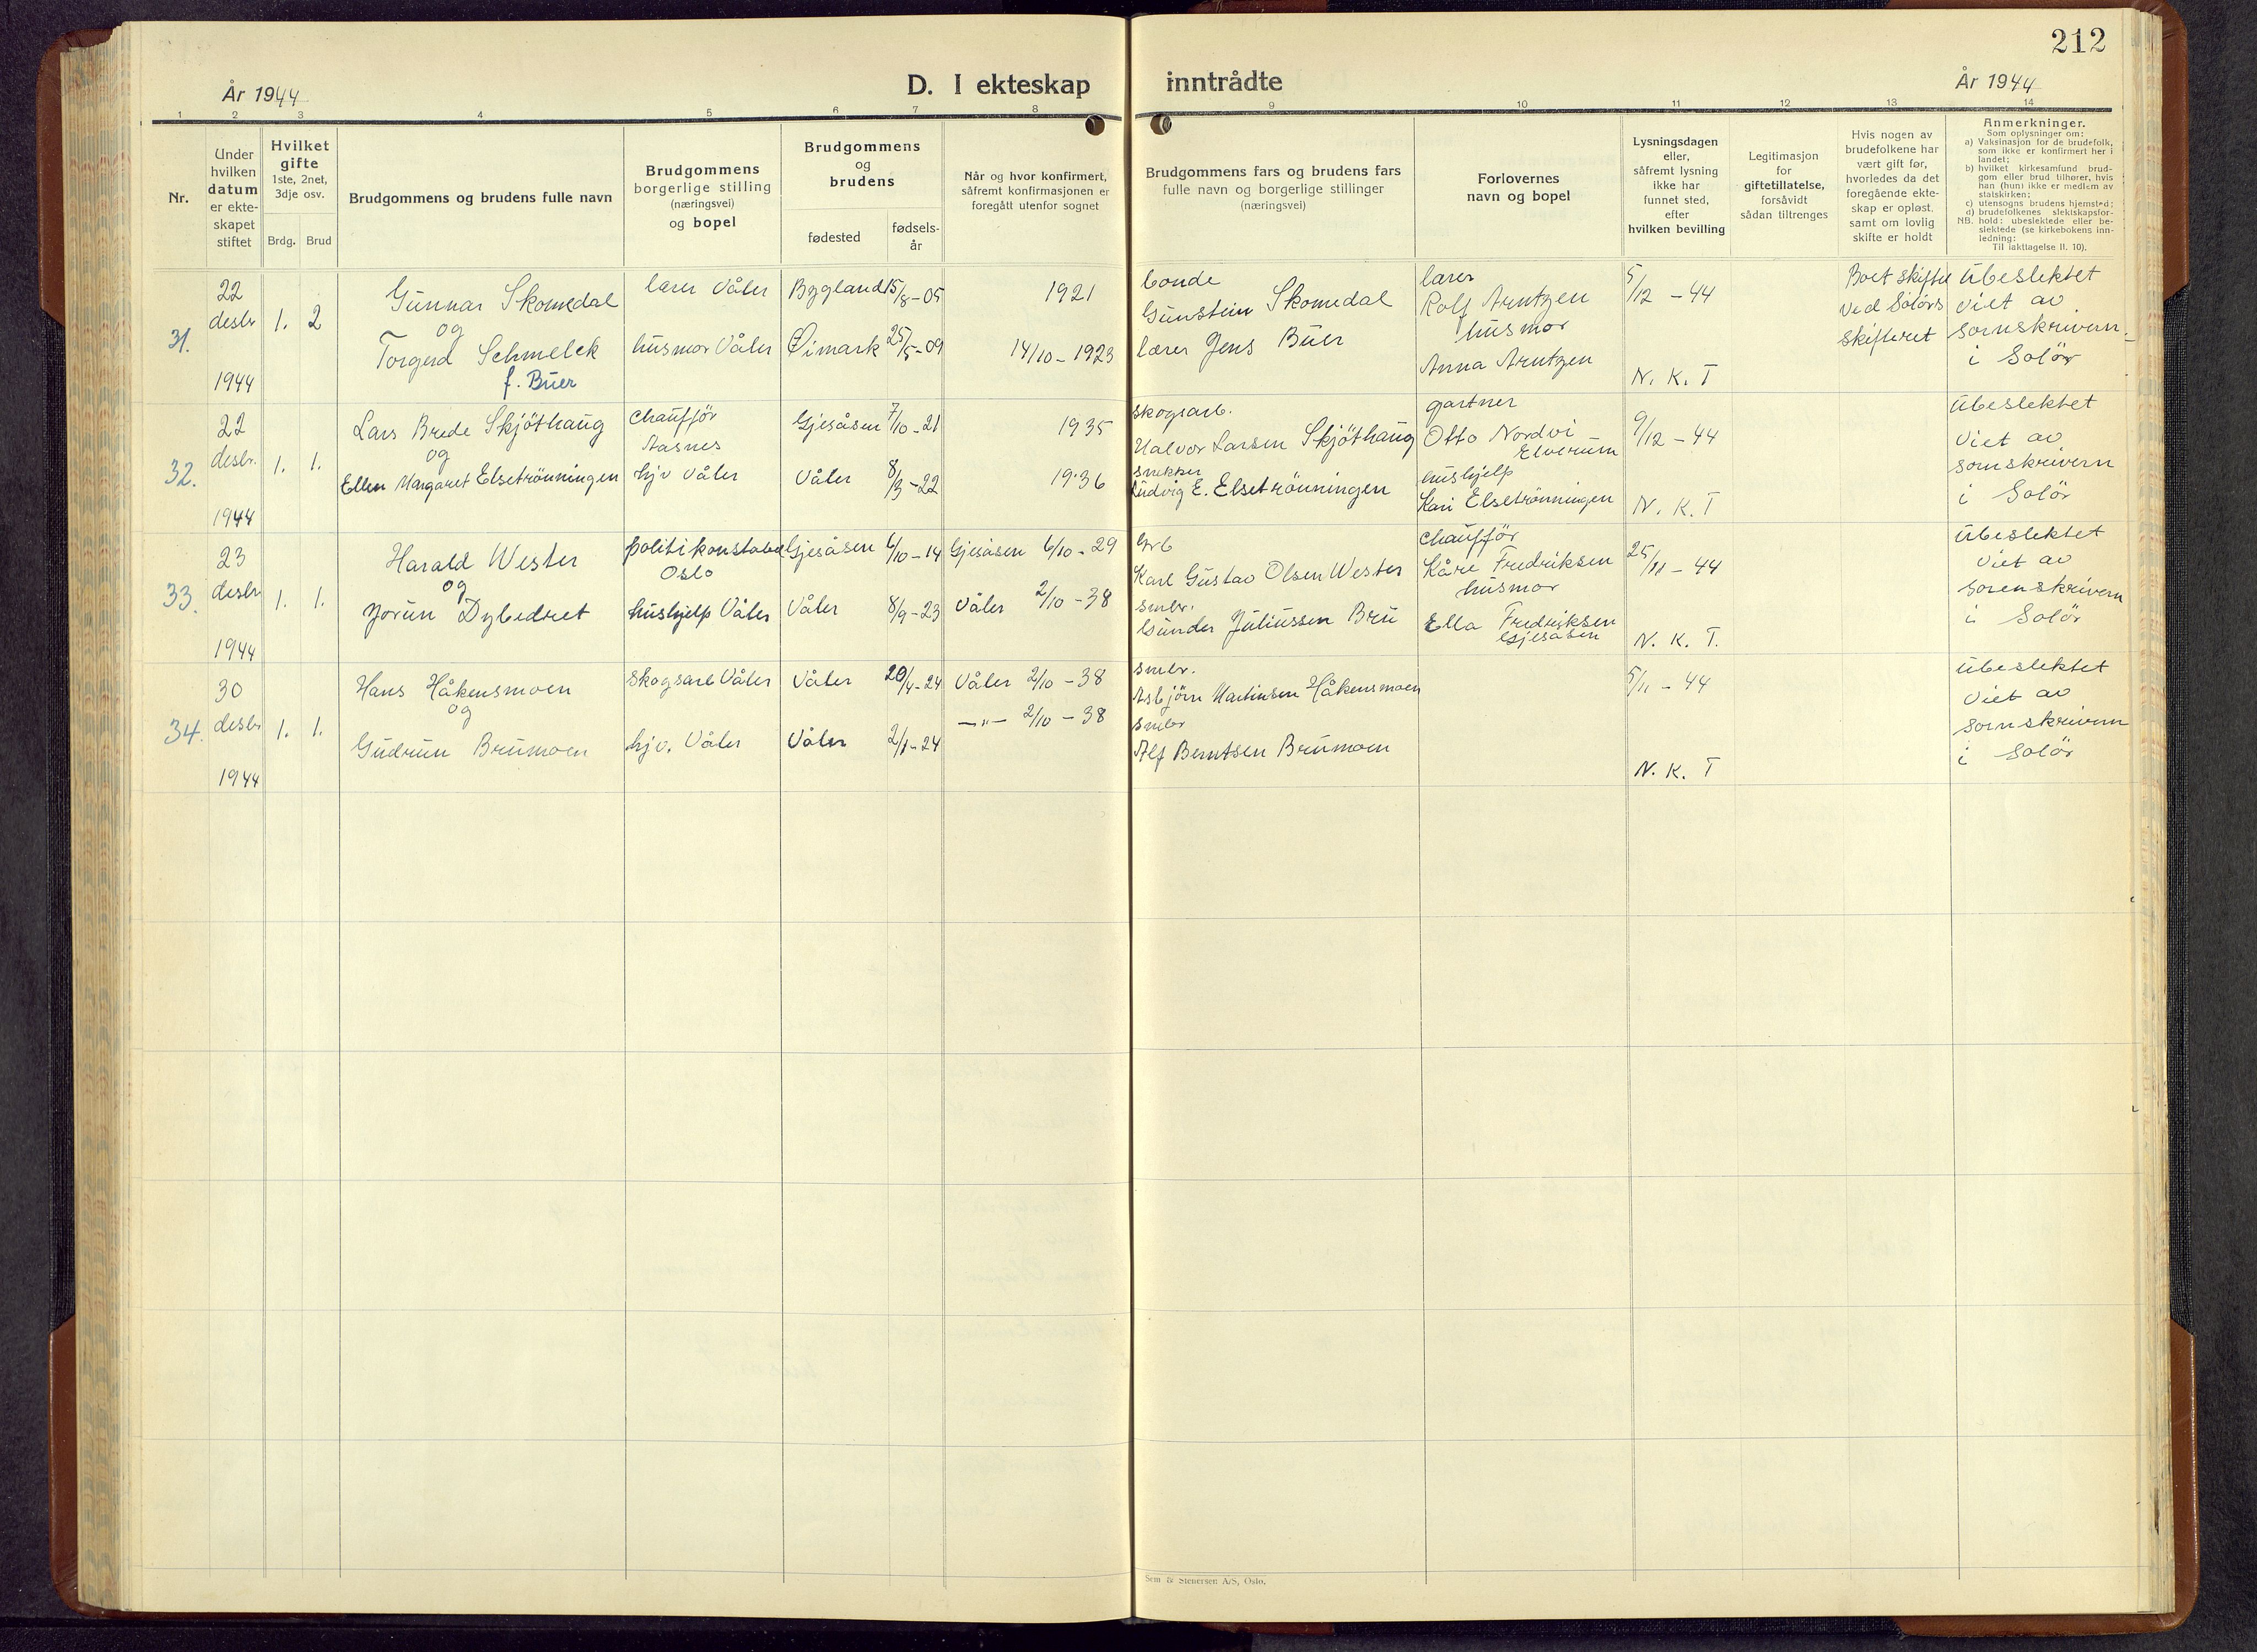 212
År 1944
D. I ekteskap inntrådte
År 1944
1 2 3 4 5 6 7 8 9 10 11 12 13 14
Nr.
Under
hvilken
datum
er ekte-
skapet
stiftet
Hvilket
gifte
1ste, 2net,
3dje osv.
Brdg. Brud
Brudgommens og brudens fulle navn
Brudgommens
borgerlige stilling
(næringsvei)
og bopel
Brudgommens
og
brudens
fødested
fødsels-
år
Når og hvor konfirmert,
såfremt konfirmasjonen er
foregått utenfor sognet
Brudgommens fars og brudens fars
fulle navn og borgerlige stillinger
(næringsvei)
Forlovernes
navn og bopel
Lysningsdagen
eller,
såfremt lysning
ikke har
funnet sted,
efter
hvilken bevilling
Legitimasjon
for
giftetillatelse,
forsåvidt
sådan tiltrenges
Hvis nogen av
brudefolkene har
vært gift før,
hvorledes da det
foregående ekte-
skap er opløst,
samt om lovlig
skifte er holdt
Anmerkninger.
Som oplysninger om:
a) Vaksinasjon for de brudefolk,
som ikke er konfirmert her i
landet;
b) hvilket kirkesamfund brud-
gom eller brud tilhører, hvis
han (hun) ikke er medlem av
statskirken;
c) utensogns brudens hjemsted;
d) brudefolkenes slektskapsfor-
NB. hold: ubeslektede eller be-
slektede (se kirkebokens inn-
ledning:
Til iakttagelse II. 10).
31.
22
desbr
1944
1. 2
Gunnar Skomedal
og
Torgerd Schmelck
f. Buer
lærer Våler
husmor Våler
Bygland 15/8-05
Øimark 25/5-09
1921
14/10-1923
bonde
Gunstein Skomedal
lærer Jens Buer
lærer
Rolf Arntzen
husmor
Anna Arntzen
5/12 - 44
N. K. T
Boet skiftet
ved Solørs
skifteret
Ubeslektet
viet av
sornskrivern
i Solör
32.
22
desbr.
1944
1. 1.
Lars Brede Skjöthaug
og
Ellen Margaret Elsetrönningen
Chaufför
Aasnes
hjv Våler
Gjesåsen 7/10-21
Våler 8/3-22
1935
1936
skogsarb.
Halvor Larsen Skjöthaug
snekker
Ludvig E. Elsetrönningen
gartner
Otto Nordvi
Elverum
hushjelp
Kari Elsetrönningen
9/12 - 44
N. K. T
Ubeslektet
viet av
sornskrivern
i Solör
33.
23
desbr
1944
1. 1.
Harald Wester
og
Jorun Dybedret
politikonstabel
Oslo
hushjelp Våler
Gjesåsen 6/10-14
Våler 8/9-23
Gjesåsen 6/10-29
Våler 2/10-38
Grb
Karl Gustav Olsen Wester
smbr.
Gunder Juliussen Bru
chaufför
Kåre Fredriksen
husmor
Ella Fredriksen
Gjesåsen
25/11 - 44
N. K. T.
Ubeslektet
viet av
sorenskrivern
i Solör
34.
30
desbr
1944
1. 1.
Hans Håkensmoen
og
Gudrun Brumoen
skogsarb Våler
hjv. Våler
Våler 20/4-24
Våler 2/1-24
Våler 2/10-38
—"— 2/10-38
smbr.
Asbjörn Martinsen Håkensmoen
smbr
Alf Berntsen Brumoen
5/11 - 44
N. K. T
Ubeslektet
viet av
sornskrivern
i Solör
Sem & Stenersen A/S, Oslo.